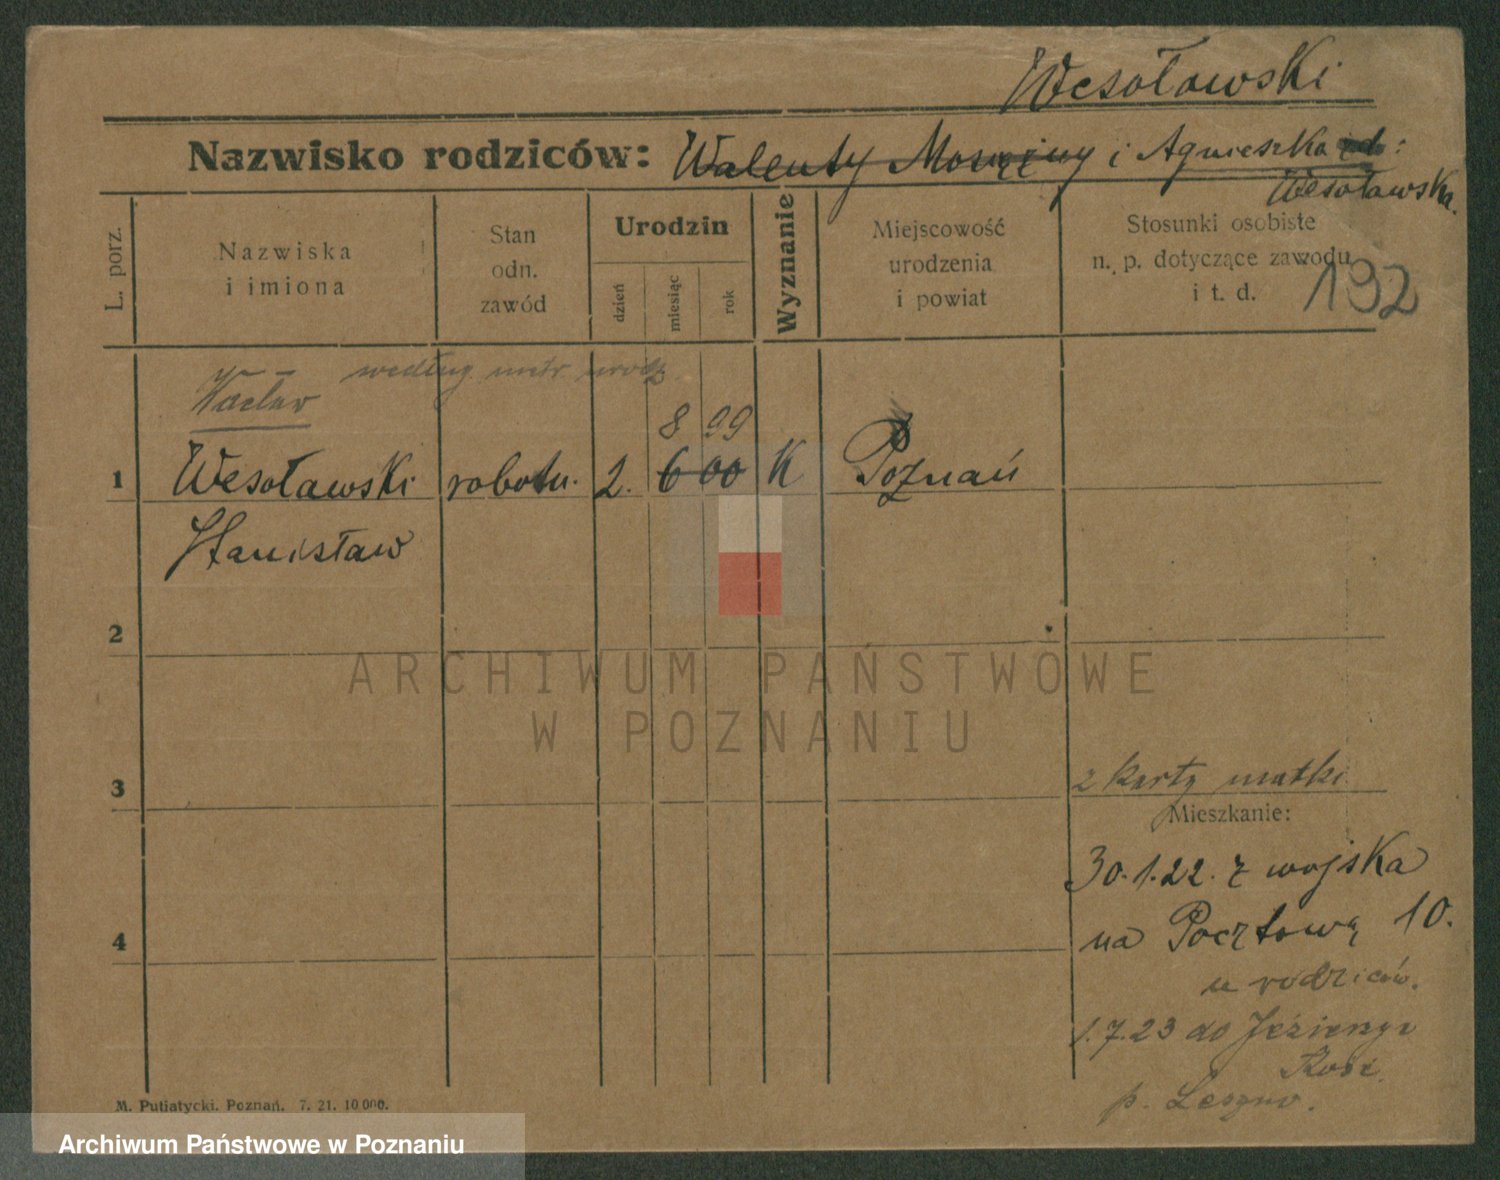 Wesołowski
Nazwisko rodziców: Walenty i Agnieszka
Wesołowska.
L. porz.
Nazwiska
i imiona
Stan
odn.
zawód
Urodzin
dzień
miesiąc
rok
Wyznanie
Miejscowość
urodzenia
i powiat
Stosunki osobiste
n. p. dotyczące zawodu
i t. d.
192
według metr. urodz.
Wacław
8 99
1 Wesoławski robotn. 2. 6 00 K Poznań
Stanisław
2
ARCHIWUM PAŃSTWOWE
W POZNANIU
3
z karty matki
Mieszkanie:
30.1.22. z wojska
4
na Pocztową 10.
u rodziców.
1.7.23 do
p. Leszno.
M. Putiatycki. Poznań. 7. 21. 10 000.
Archiwum Państwowe w Poznaniu